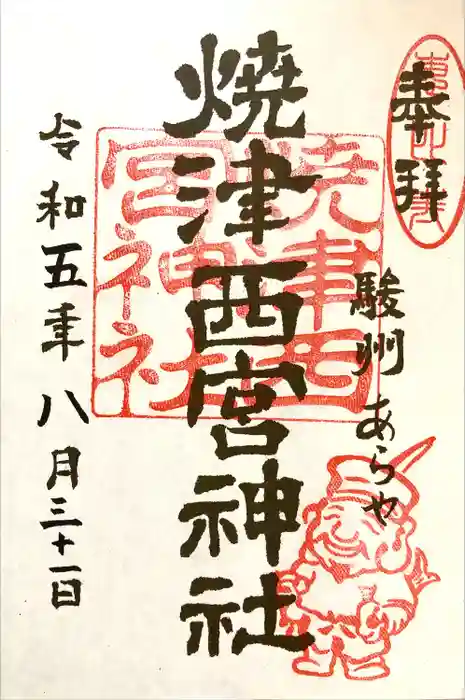 奉拝
駿州 あらや
焼津西宮神社
焼津西宮神社
令和五年八月三十一日